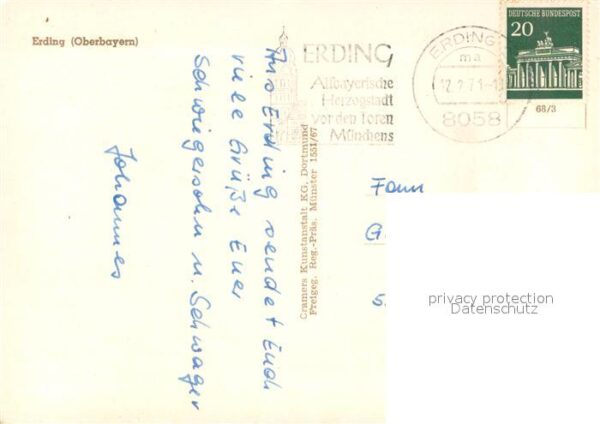 Erding (Oberbayern)
Aus Erding sendet Euch
viele Grüße Euer
Schwiegersohn u. Schwager
Johannes
Cramers Kunstanstalt KG. Dortmund
Freigeg. Reg.-Präs. Münster 1551/67
ERDING
Altbayerische
Herzogstadt
vor den Toren
Münchens
ERDING
ma
8058
DEUTSCHE BUNDESPOST
20
68/3
Fam
G
5
privacy protection
Datenschutz